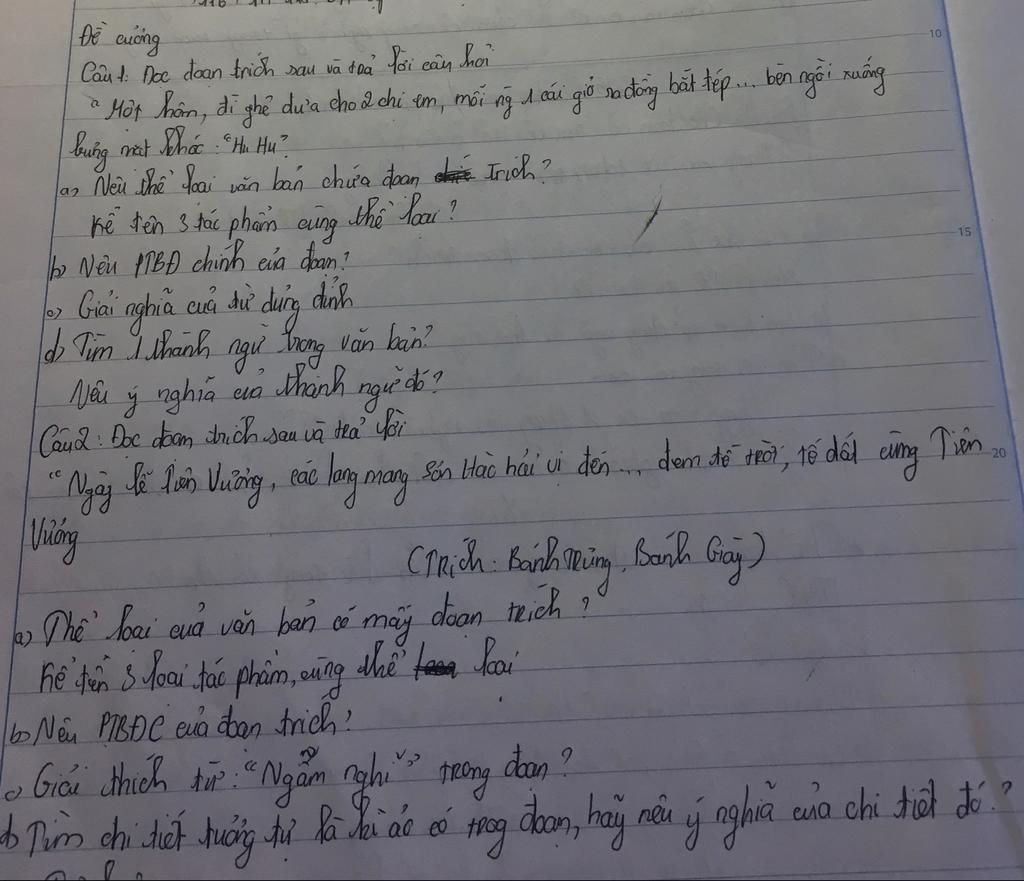 Đề cương
Câu 1: Đọc đoạn trích sau và trả lời câu hỏi
"Một hôm, dì ghẻ đưa cho 2 chị em, mỗi ng 1 cái giỏ ra đồng bắt tép... bèn ngồi xuống
bưng mặt khóc: "Hu Hu?
a, Nêu thể loại văn bản chứa đoạn trích?
Kể tên 3 tác phẩm cùng thể loại?
b) Nêu PTBĐ chính của đoạn?
c) Giải nghĩa của từ dủng đỉnh
d) Tìm 1 thành ngữ trong văn bản?
Nêu ý nghĩa của thành ngữ đó?
Câu 2: Đọc đoạn trích sau và trả lời
"Ngày lễ Tiên Vương, các lang mang sơn Hào hải vị đến... đem tế trời, tế đất cùng Tiên
Vương
(Trích: Bánh Trưng, Bánh Giày)
a) Thể loại của văn bản có mấy đoạn trích?
Kể tên 3 loại tác phẩm, cùng thể loại
b) Nêu PTBĐC của đoạn trích?
c) Giải thích từ: "Ngẫm nghĩ" trong đoạn?
d) Tìm chi tiết tưởng tự là kì ảo có trog đoạn, hãy nêu ý nghĩa của chi tiết đó?